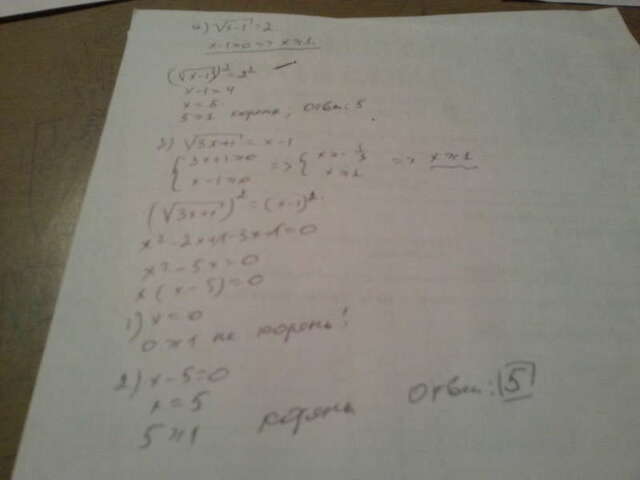 а) √x-1 = 2
x-1≥0 => x≥1
(√x-1)² = 2²
x-1=4
x=5
5≥1 корень, Ответ: 5.
б) √3x+1 = x-1
{3x+1≥0 => {x≥-1/3 => x≥1
x-1≥0 x≥1
(√3x+1)² = (x-1)²
x²-2x+1-3x-1=0
x²-5x=0
x(x-5)=0
1) x=0
0≥1 не корень!
2) x-5=0
x=5
5≥1 корень Ответ: 5